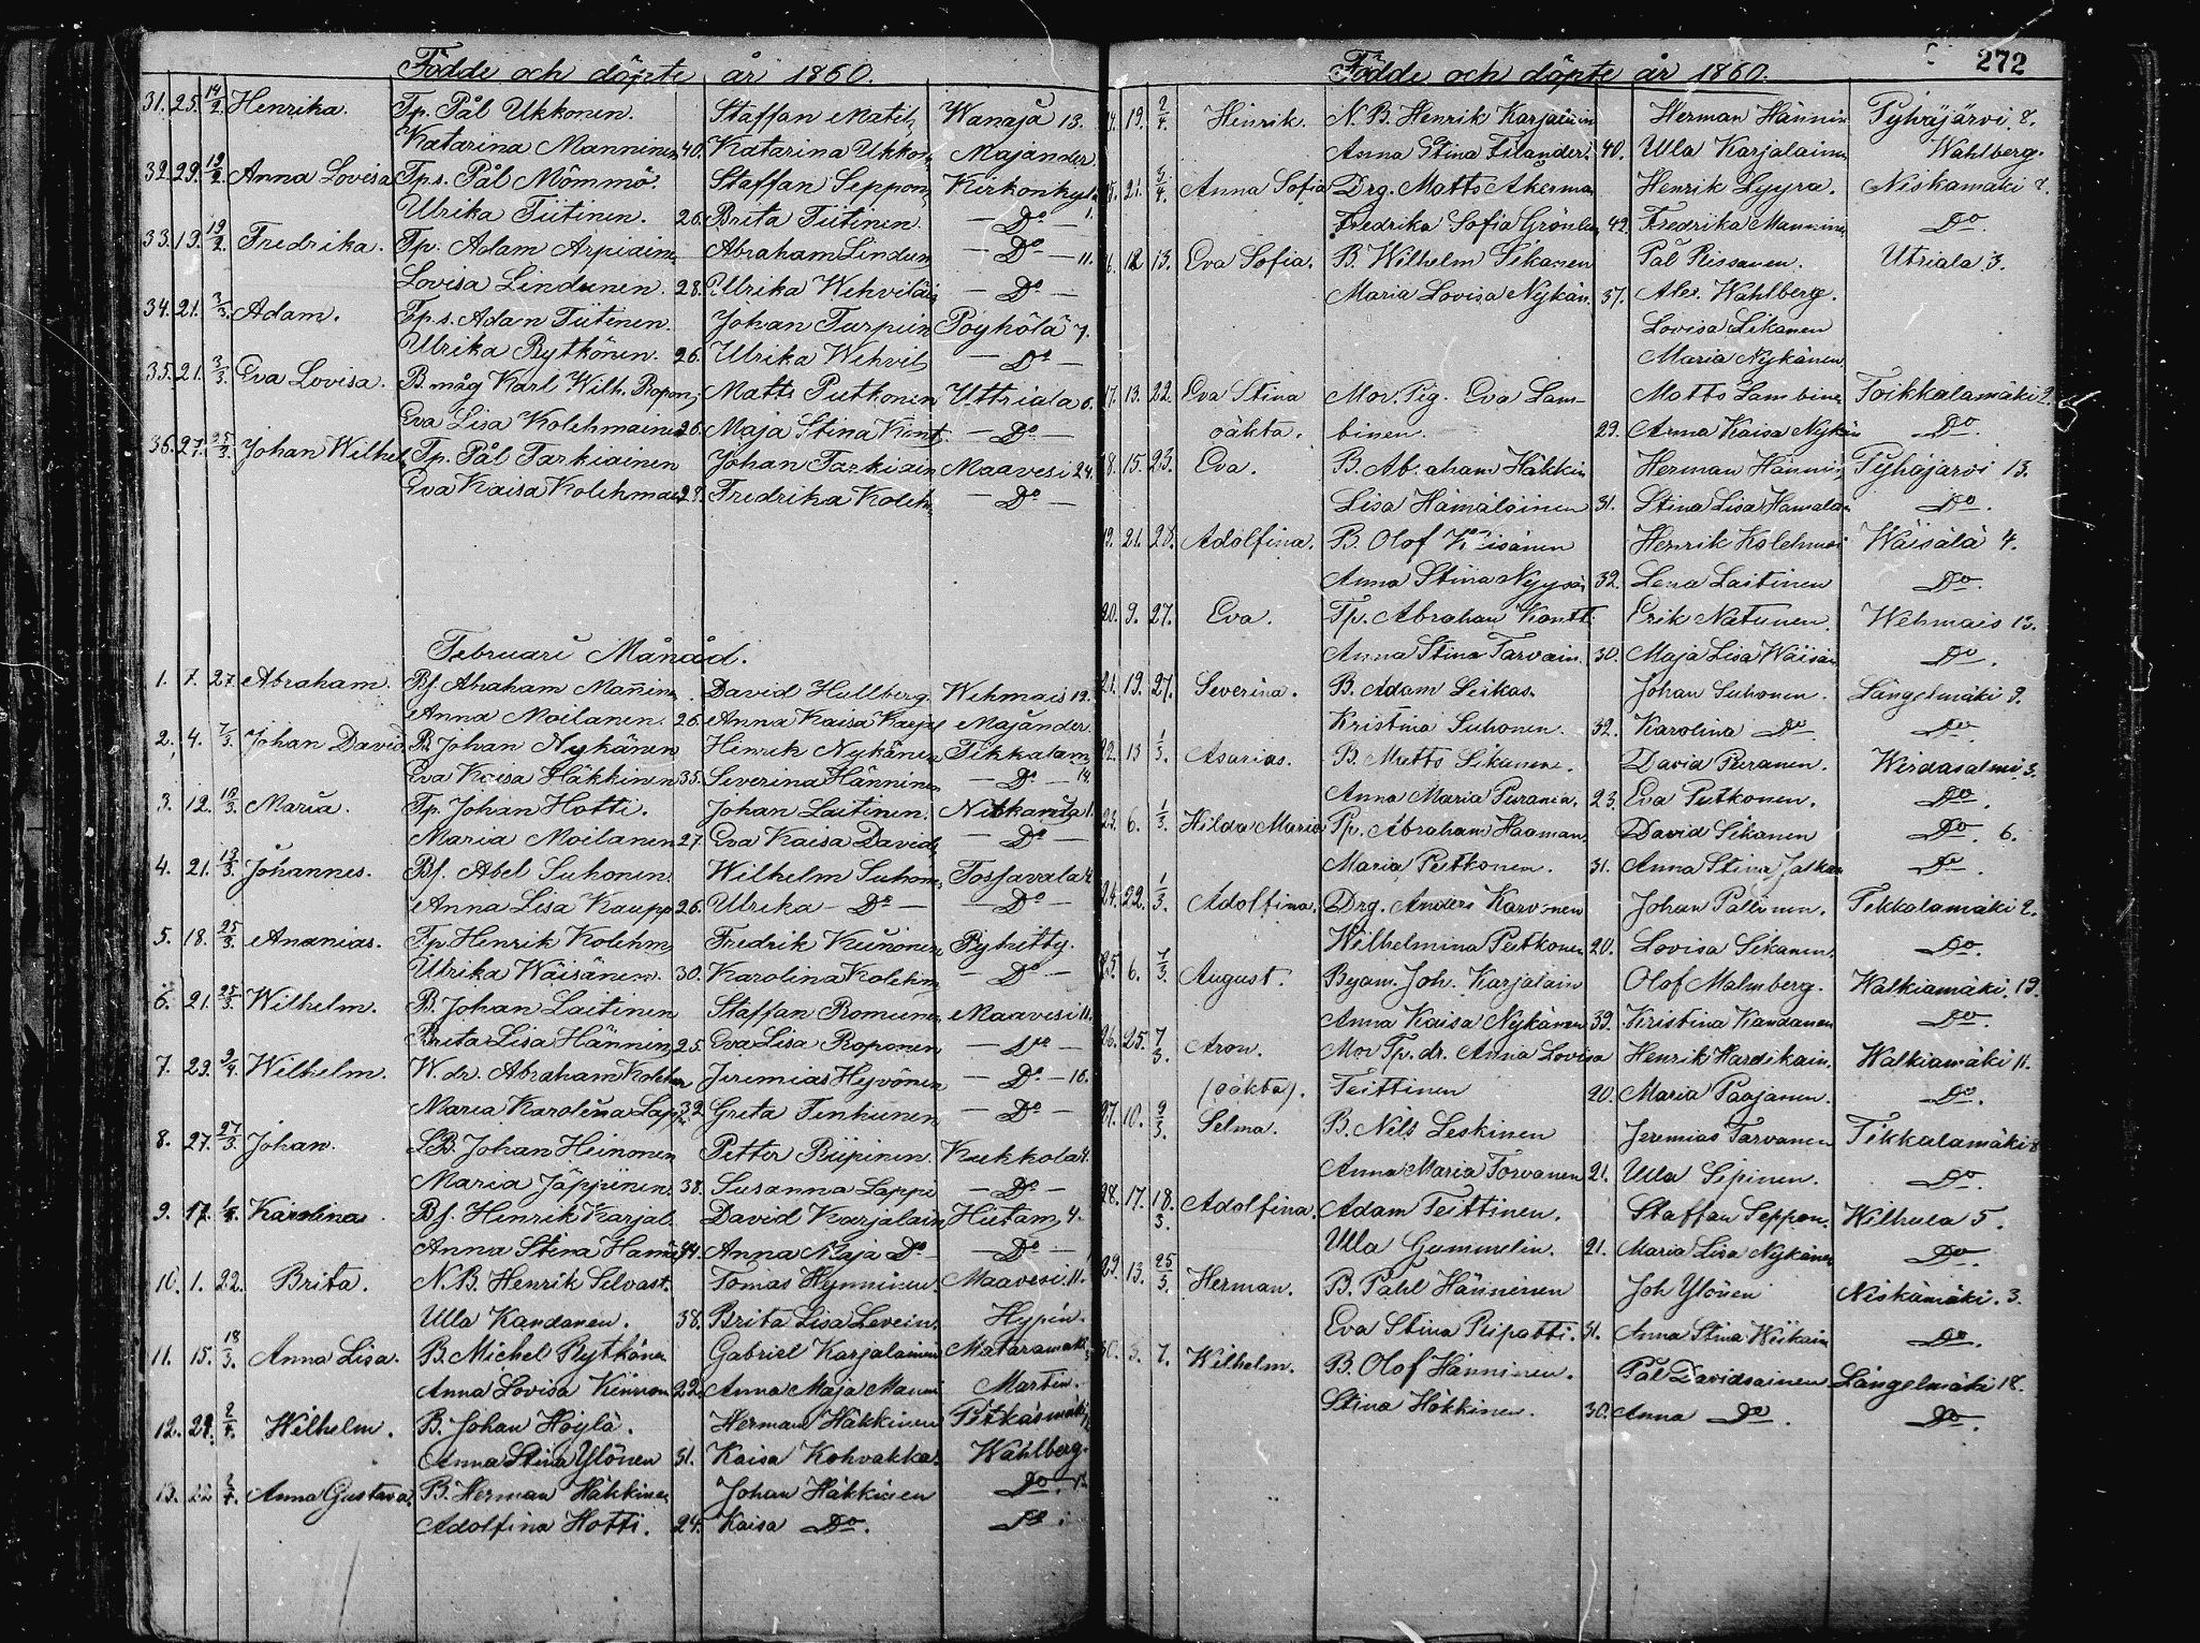 Födde och döpte år 1860.
31. 25. 14/2 Henrika. Tp. Pål Ukkonen. Staffan Matil, Wanaja 13.
Katarina Manninen 40. Katarina Ukkon, Majander.
32. 29. 19/2. Anna Lovisa Tp.s. Pål Mömmö. Staffan Seppon, Kirkonkyl
Ulrika Tiitinen. 26. Brita Tiitinen. — Do — 1.
33. 19. 19/2. Fredrika. Tp. Adam Arpiain, Abraham Lindun, — Do — 11.
Lovisa Lindunen. 28. Ulrika Wehviläin — Do —
34. 21. 2/3. Adam. Tp.s. Adam Tiitinen. Johan Turpein Pöyhölä 7.
Ulrika Rytkönen. 26. Ulrika Wehvil — Do —
35. 21. 3/3. Eva Lovisa. B. måg Karl Wilh. Ropon, Matts Putkonen Uttriala 6.
Eva Lisa Kolehmainen 26. Maja Stina Kont — Do —
36. 27. 25/3. Johan Wilhel, Tp. Pål Tarkiainen Johan Tarkiain Maavesi 24.
Eva Kaisa Kolehmai 29. Fredrika Koleh, — Do —
Februari Månad.
1. 7. 27. Abraham. Bf. Abraham Mannin, David Hullberg. Wehmais 12.
Anna Moilanen. 26. Anna Kaisa Karjal Majander.
2. 4. 7/3. Johan David B. Johan Nykänen Henrik Nykänen Tikkalam,
Eva Kaisa Häkkinen 35. Severina Hänninen — Do — 14.
3. 12. 10/3. Maria. Tp. Johan Hotti. Johan Laitinen. Niskamäki 1.
Maria Moilanen 27. Eva Kaisa David, — Do —
4. 21. 13/3. Johannes. Bf. Abel Suhonen. Wilhelm Suhon, Tosjavala
Anna Lisa Kaupp 26. Ulrika — Do — — Do —
5. 18. 25/3. Ananias. Tp. Henrik Kolehm, Fredrik Keinonen Pyhitty.
Ulrika Wäisänen. 30. Karolina Kolehm — Do —
6. 21. 25/3. Wilhelm. B. Johan Laitinen Staffan Romunen Maavesi 11.
Brita Lisa Hännin, 25. Eva Lisa Roponen — Do —
7. 29. 9/4. Wilhelm. W. dr. Abraham Kolehm Jeremias Hyvönen — Do — 16.
Maria Karolina Lap, 32 Greta Tenhunen — Do —
8. 27. 27/3. Johan. L.B. Johan Heinonen Petter Piipinen. Kukkola 4.
Maria Jäppinen. 38. Susanna Lappi — Do —
9. 17. Karolina. Bf. Henrik Karjal. David Karjalain Hiitam, 4.
Anna Stina Hämä 44. Anna Maja Do — — Do —
10. 1. 22. Brita. N.B. Henrik Silvast. Tomas Hynninen. Maavesi 11.
Ulla Kandanen. 38. Brita Lisa Levein. Hypén.
11. 15. 18/3. Anna Lisa. B. Michel Rytköne Gabriel Karjalainen Mataramäki
Anna Lovisa Keinon 22. Anna Maja Manni Martin.
12. 21. 2/4. Wilhelm. B. Johan Höylä. Herman Häkkinen Pitkäsmäki
Anna Stina Ylönen 31. Kaisa Kohvakka. Wahlberg.
13. 22 3/4. Anna Gustava, B. Herman Häkkinen Johan Häkkinen Do. 13.
Adolfina Hotti. 24. Kaisa Do. Do
Födde och döpte år 1860. 272
14. 19. 2/4. Henrik. N.B. Henrik Karjalain Herman Hännin Pyhäjärvi. 8.
Anna Stina Filander. 40. Ulla Karjalainen Wahlberg.
15. 21. 3/4. Anna Sofia Drg. Matts Åkerman Henrik Lyyra. Niskamäki 2.
Fredrika Sofia Grönlun 42. Fredrika Manninen Do.
16. 12 13. Eva Sofia. B. Wilhelm Sikanen Pål Rissanen. Utriala 3.
Maria Lovisa Nykän. 37. Alex. Wahlberg.
Lovisa Sikanen
Maria Nykänen.
17. 13. 22. Eva Stina Mor. Pig. Eva Lam- Matts Lambinen Toikkalamäki 2.
oäkta. binen. 29. Anna Kaisa Nykän Do.
18. 15. 23. Eva. B. Abraham Häkkin Herman Hännin, Pyhäjärvi 13.
Lisa Hämäläinen 31. Stina Lisa Hämäläi Do.
19. 21. 28. Adolfina. B. Olof Wäisänen Henrik Kolehmai Wäisälä 4.
Anna Stina Nyysön 32. Lena Laitinen Do.
20. 9. 27. Eva. Tp. Abraham Kontt. Erik Natunen. Wehmais 13.
Anna Stina Tarvain. 30. Maja Lisa Wäisän Do.
21. 19. 27. Severina. B. Adam Leikas. Johan Suhonen. Längelmäki 9.
Kristina Suhonen. 32. Karolina Do Do.
22. 13 1/3. Asarias. B. Matts Sikanen. David Puranen. Wirdasalmi 3.
Anna Maria Purania. 23. Eva Peitkonen. Do.
23. 6. 1/3. Hilda Maria Tp. Abraham Haaman. David Sikanen Do. 6.
Maria Peitkonen. 31. Anna Stina Jalkan Do.
24. 22. 1/3. Adolfina. Drg. Anders Karvonen Johan Pallinen. Tikkalamäki 2.
Wilhelmina Peitkonen 20. Lovisa Sikanen. Do.
25. 6. 7/3. August. Byam. Joh. Karjalain Olof Malmberg. Walkiamäki. 19.
Anna Kaisa Nykänen 39. Kristina Kandanen Do.
26. 25. 7/3. Aron. Mor Tp. dr. Anna Lovisa Henrik Hardikain. Walkiamäki 11.
(oäkta). Teittinen 20. Maria Paajanen. Do.
27. 10. 9/3. Selma. B. Nils Leskinen Jeremias Tarvanen Tikkalamäki 8
Anna Maria Torvanen 21. Ulla Sipinen. Do.
28. 17. 18/3. Adolfina. Adam Teittinen. Staffan Seppon. Wilhula 5.
Ulla Gummelin. 21. Maria Lisa Nykänen Do.
29. 13. 25/3. Herman. B. Pahl Hänninen Joh Ylönen Niskämäki. 3.
Eva Stina Ripatti. 31. Anna Stina Wäikain Do.
30. 3. 7. Wilhelm. B. Olof Hänninen. Pål Davidsainen Längelmäki 18.
Stina Häkkinen. 30. Anna Do. Do.